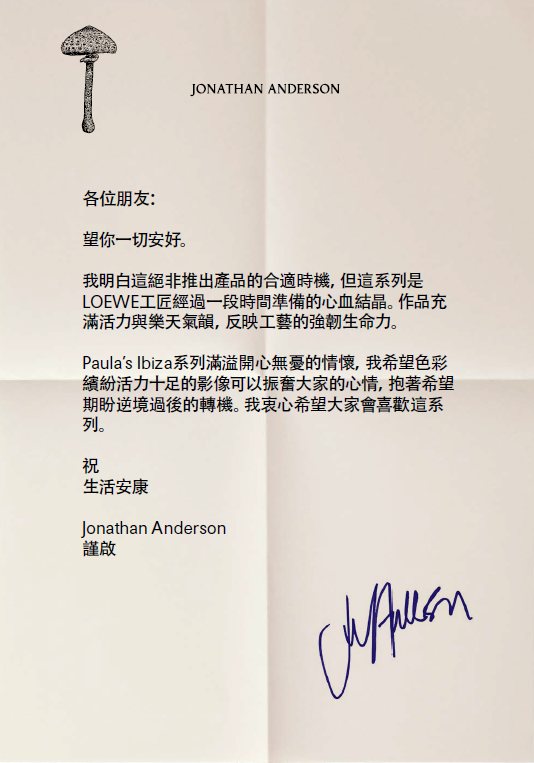 JONATHAN ANDERSON
各位朋友：
望你一切安好。
我明白這絕非推出產品的合適時機, 但這系列是
LOEWE工匠經過一段時間準備的心血結晶。作品充
滿活力與樂天氣韻, 反映工藝的強韌生命力。
Paula's Ibiza系列滿溢開心無憂的情懷, 我希望色彩
繽紛活力十足的影像可以振奮大家的心情, 抱著希望
期盼逆境過後的轉機。我衷心希望大家會喜歡這系
列。
祝
生活安康
Jonathan Anderson
謹啟